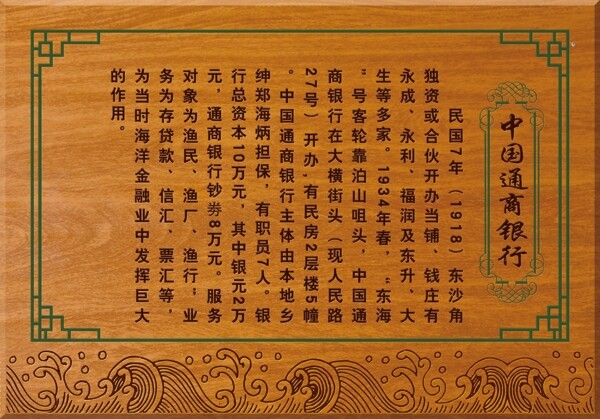 中国通商银行
民国7年（1918）东沙角
独资或合伙开办当铺、钱庄有
永成、永利、福润及东升、大
生等多家。1934年春，“东海
”号客轮靠泊山咀头，中国通
商银行在大横街头（现人民路
27号）开办,有民房2层楼5幢
。中国通商银行主体由本地乡
绅郑海炳担保，有职员7人。银
行总资本10万元，其中银元2万
元，通商银行钞券8万元。服务
对象为渔民、渔厂、渔行”业
务为存贷款、信汇、票汇等，
为当时海洋金融业中发挥巨大
的作用。